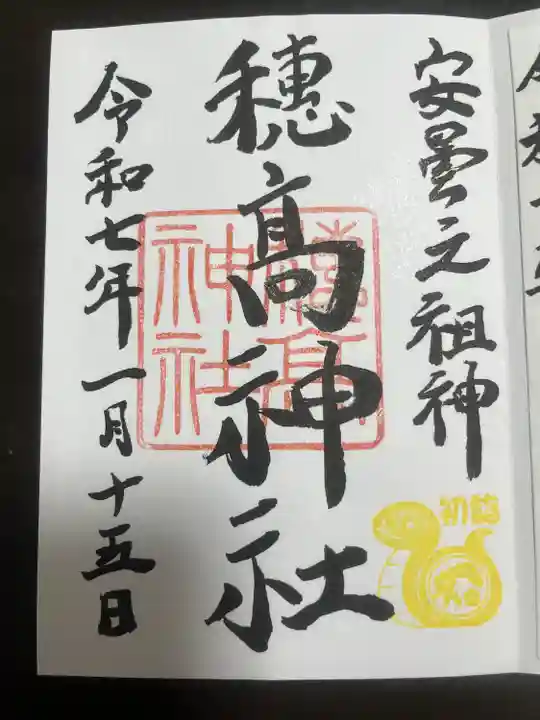 安曇之祖神
穂高神社
穂高神社
令和七年一月十五日
初詣